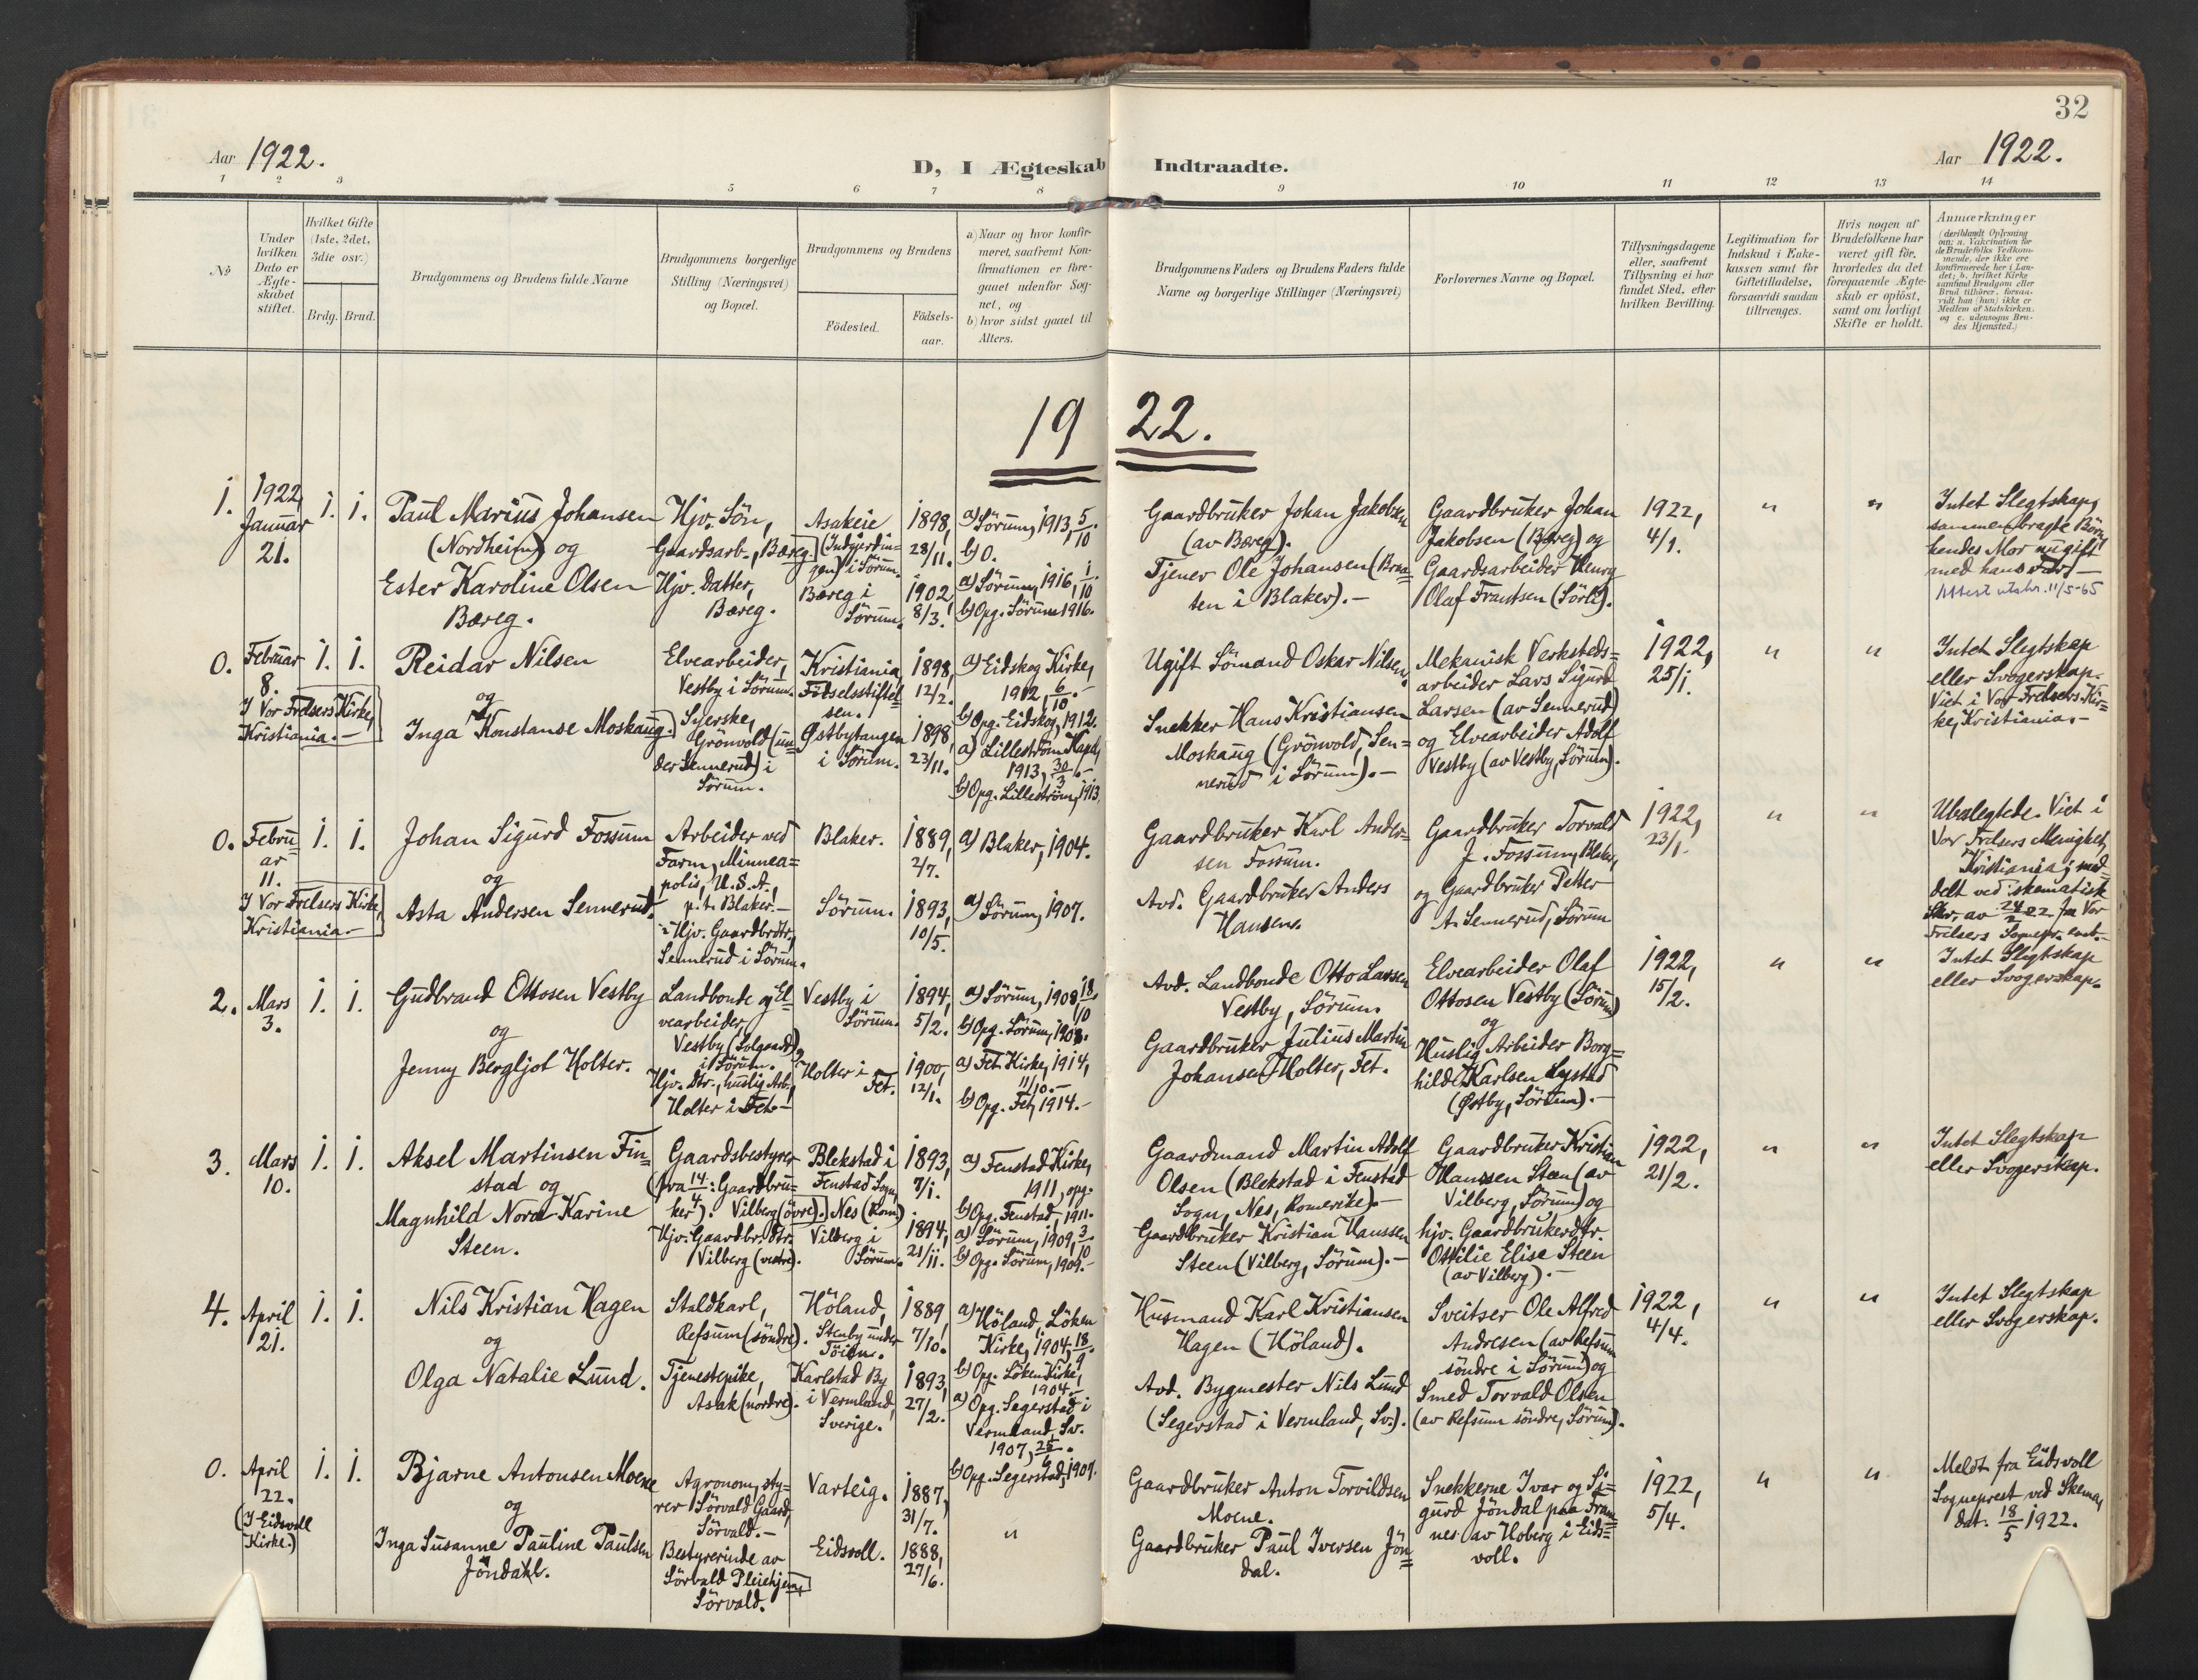 32
Aar 1922.
D, I Ægteskab Indtraadte.
Aar 1922.
1 2 3 5 6 7 8 9 10 11 12 13 14
No
Under hvilken Dato er Ægteskabet stiftet.
Hvilket Gifte (1ste, 2det, 3die osv.)
Brdg.
Brud.
Brudgommens og Brudens fulde Navne
Brudgommens borgerlige Stilling (Næringsvei) og Bopæl.
Brudgommens og Brudens
Födested.
Födsels-aar.
a) Naar og hvor konfir-
meret, saafremt Kon-
firmationen er fore-
gaaet udenfor Sog-
net, og
b) hvor sidst gaaet til
Alters.
Brudgommens Faders og Brudens Faders fulde
Navne og borgerlige Stillinger (Næringsvei)
Forlovernes Navne og Bopæl.
Tillysningsdagene
eller, saafremt
Tillysning ei har
fundet Sted, efter
hvilken Bevilling.
Legitimation for
Indskud i Enke-
kassen samt for
Giftetilladelse,
forsaavidt saadan
tiltrænges.
Hvis nogen af
Brudefolkene har
været gift før,
hvorledes da det
foregaaende Ægte-
skab er opløst,
samt om lovligt
Skifte er holdt.
Anmærkninger
(deriblandt Oplysning
om: a. Vakcination for
de Brudefolks Vedkom-
mende, der ikke ere
konfirmerede her i Lan-
det; b. hvilket Kirke
samfund Brudgom eller
Brud tilhører, forsaa-
vidt han (hun) ikke er
Medlem af Statskirken,
og c. udensogns Bru-
des Hjemsted.)
19 22.
1.
1922,
Januar
21.
1. 1.
Paul Marius Johansen
(Nordheim) og
Ester Karoline Olsen
Bæreg.
Hjv. Sön,
Gaardsarb., Bæreg.
Hjv. Datter,
Bæreg.
Asakeie
(Indgjerdin-
gen) i Sörum.
Bæreg i
Sörum.
1898,
28/11.
1902,
8/3.
a) Sörum, 1913, 5/10.
b) O.
a) Sörum, 1916, 1/10
b) Opg. Sörum 1916.
Gaardbruker Johan Jakobsen
(av Bæreg).
Tjener Ole Johansen (Braa=
ten i Blaker). —
Gaardbruker Johan
Jakobsen (Bæreg) og
Gaardsarbeider Henry
Olaf Frantsen (Sörli).
1922,
4/1.
" "
Intet Slegtskap,
sammenbragte Börn,
hendes Mor nugift
med hans Far. —
Attest utskr. 11/5-65
0.
Februar
8.
I Vor Frelsers Kirke,
Kristiania. —
1. 1.
Reidar Nilsen
og
Inga Konstanse Moskaug.
Elvearbeider,
Vestby i Sörum.
Syerske,
Grönvold (un=
der Sennerud) i
Sörum.
Kristiania,
Födselsstiftel=
sen.
Østbytangen
i Sörum.
1898,
12/2.
1898,
23/11.
a) Eidskog Kirke,
1912, 6/10. —
b) Opg. Eidskog, 1912.
a) Lilleström Kapel,
1913, 30/3. —
b) Opg. Lilleström, 1913.
Ugift Sömand Oskar Nilsen.
Snekker Hans Kristiansen
Moskaug (Grönvold, Sen=
nerud i Sörum). —
Mekanisk Verksteds=
arbeider Lars Sigurd
Larsen (av Sennerud)
og Elvearbeider Adolf
Vestby (av Vestby, Sörum).
1922,
25/1.
" "
Intet Slegtskap
eller Svogerskap.
Viet i Vor Frelsers Kir=
ke, Kristiania. —
0.
Febru=
ar
11.
I Vor Frelsers Kirke,
Kristiania. —
1. 1.
Johan Sigurd Fossum
og
Asta Andersen Sennerud.
Arbeider ved
Farm, Minnea=
polis, U.S.A.,
p.t. Blaker. —
Hjv. Gaardbrdtr,
Sennerud i Sörum.
Blaker.
Sörum.
1889,
2/7.
1893,
10/5.
a) Blaker, 1904.
a) Sörum, 1907.
Gaardbruker Karl Ander=
sen Fossum.
Avd. Gaardbruker Anders
Hansen.
Gaardbruker Torvald
J. Fossum, Blaker,
og Gaardbruker Petter
A. Sennerud, Sörum
1922,
23/1.
" "
Ubeslegtede. Viet i
Vor Frelsers Menighet,
Kristiania; med=
delt ved skematisk
Skr. av 24/2 22 fra Vor
Frelsers Sognepr.
2.
Mars
3.
1. 1.
Gudbrand Ottosen Vestby
og
Jenny Bergljot Holter.
Landbonde og El=
vearbeider,
Vestby (Solgaard)
i Sörum.
Hjv. Dtr., huslig Arb.,
Holter i Fet. —
Vestby i
Sörum.
Holter i
Fet.
1894,
5/2.
1900,
12/1.
a) Sörum, 1908, 18/10
b) Opg. Sörum, 1908.
a) Fet Kirke, 1914,
11/10. —
b) Opg. Fet, 1914. —
Avd. Landbonde Otto Larsen
Vestby, Sörum.
Gaardbruker Julius Martin
Johansen Holter, Fet.
Elvearbeider Olaf
Ottosen Vestby (Sörum)
og
Huslig Arbeider Borg=
hild Karlsen Lystad
(Østby, Sörum). —
1922,
15/2.
" "
Intet Slegtskap
eller Svogerskap.
3.
Mars
10.
1. 1.
Aksel Martinsen Fin=
stad og
Magnhild Nora Karine
Steen.
Gaardsbestyrer
(fra 14/4: Gaardbru=
ker). Vilberg (övre).
Hjv. Gaardbr. Dtr.
Vilberg (vestre).
Blekstad i
Fenstad Sogn,
Nes (Rom.)
Vilberg i
Sörum.
1893,
7/1.
1894,
21/11.
a) Fenstad Kirke,
1911, opg.
b) Opg. Fenstad, 1911.
a) Sörum, 1909, 3/10
b) Opg. Sörum, 1909. —
Gaardmand Martin Adolf
Olsen (Blekstad i Fenstad
Sogn, Nes, Romerike). —
Gaardbruker Kristian Hanssen
Steen (Vilberg, Sörum). —
Gaardbruker Kristian
Hanssen Steen (av
Vilberg, Sörum) og
hjv. Gaardbrukerdtr.
Ottilie Elise Steen
(av Vilberg). —
1922,
21/2.
" "
Intet Slegtskap
eller Svogerskap.
4.
April
21.
1. 1.
Nils Kristian Hagen
og
Olga Natalie Lund.
Staldkarl,
Refsum (söndre).
Tjenestepike,
Asak (nordre).
Höland,
Stenby under
Töien.
Karlstad By
i Vermland,
Sverige.
1889,
7/10.
1893,
27/2.
a) Höland, Löken
Kirke, 1904, 18/9.
b) Opg. Löken Kirke,
1904. —
a) Opg. Segerstad i
Vermland, Sv.
1907, 25/6.
b) Opg. Segerstad, 1907.
Husmand Karl Kristiansen
Hagen (Höland).
Avd. Bygmester Nils Lund
(Segerstad i Vermland, Sv.).
Sveitser Ole Alfred
Andresen (av Refsum
söndre i Sörum) og
Smed Torvald Olsen
(av Refsum söndre, Sörum).
1922,
4/4.
" "
Intet Slegtskap
eller Svogerskap.
0.
April
22.
(I Eidsvoll
Kirke.)
1. 1.
Bjarne Antonsen Moene
og
Inga Susanne Pauline Paulsen
Jöndahl.
Agronom, sty=
rer Sörvald Gaard,
Sörvald. —
Bestyrerinde av
Sörvald Pleiehjem,
Sörvald.
Varteig.
Eidsvoll.
1887,
31/7.
1888,
27/6.
"
Gaardbruker Anton Torvildsen
Moene.
Gaardbruker Paul Iversen Jön=
dal.
Snekkerne Ivar og Si=
gurd Jöndal paa Fram
nes av Hoberg i Eids=
voll.
1922,
5/4.
" "
Meldt fra Eidsvoll
Sogneprest ved Skema,
dat. 18/5 1922.